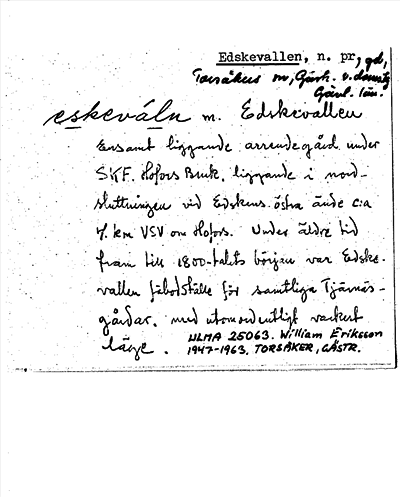 Edskevallen, n. pr, gd,
Torsåkers sn, Gästr. v. domsg
Gävl. län.
eskeváln m. Edskevallen
Ensamt liggande arrendegård under
SKF. Hofors Bruk, liggande i nord-
sluttningen vid Edskens östra ände c:a
7. km VSV om Hofors. Under äldre tid
fram till 1800-talets början var Edske-
vallen fäbodställe för samtliga Tjärnäs-
gårdar. med utomordentligt vackert
läge. ULMA 25063. William Eriksson
1947-1963. TORSÅKER, GÄSTR.